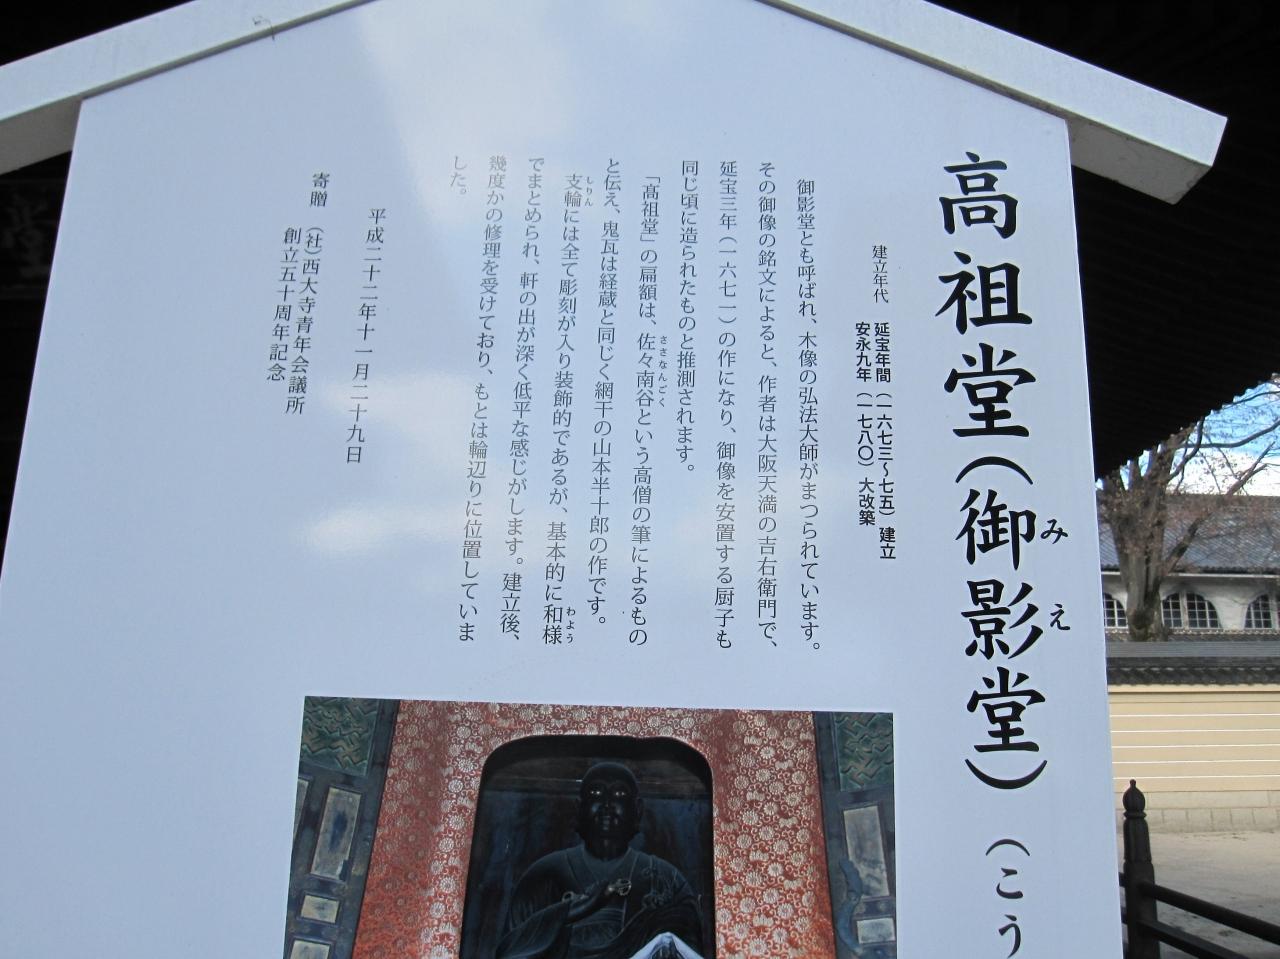 高祖堂(御影堂)(こう
みえ
建立年代 延宝年間(一六七三〜七五)建立
安永九年(一七八〇)大改築
御影堂とも呼ばれ、木像の弘法大師がまつられています。
その御像の銘文によると、作者は大阪天満の吉右衛門で、
延宝三年(一六七一)の作になり、御像を安置する厨子も
同じ頃に造られたものと推測されます。
「髙祖堂」の扁額は、佐々南谷という高僧の筆によるもの
ささなんごく
と伝え、鬼瓦は経蔵と同じく網干の山本半十郎の作です。
支輪には全て彫刻が入り装飾的であるが、基本的に和様
しりん
わよう
でまとめられ、軒の出が深く低平な感じがします。建立後、
幾度かの修理を受けており、もとは輪辺りに位置していま
した。
平成二十二年十一月二十九日
寄贈 (社)西大寺青年会議所
創立五十周年記念